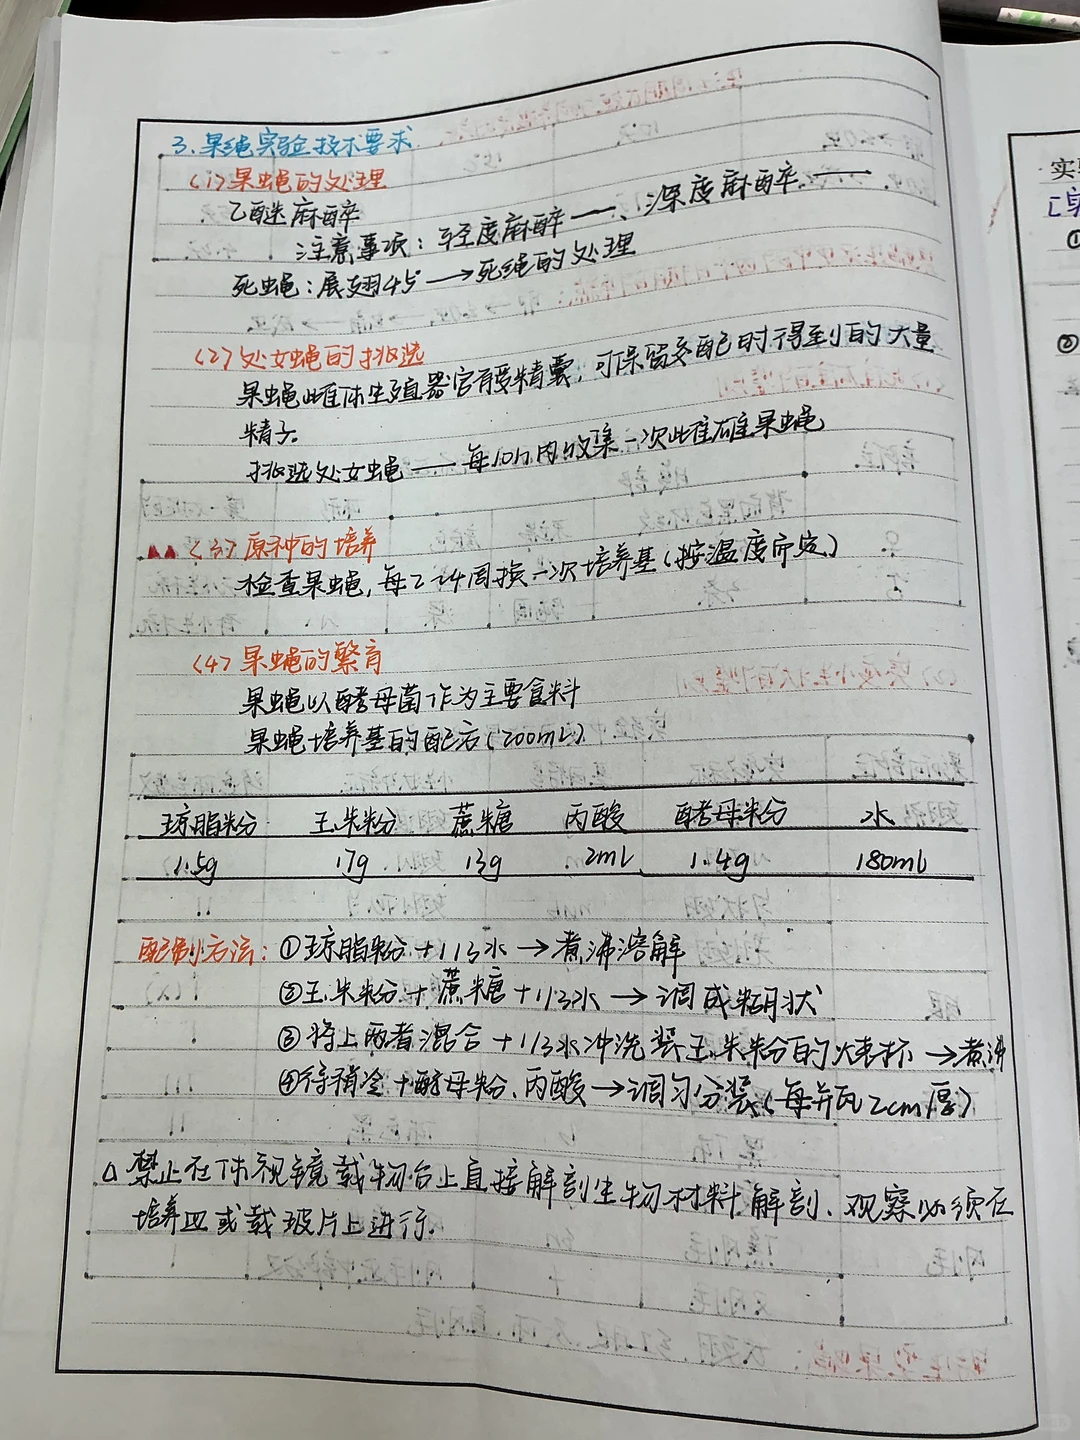 3、果绳实验技术要求
(1)果蝇的处理
乙醚麻醉
注意事项：轻度麻醉——、深度麻醉——
死蝇：展翅45°→死绳的处理
(2)处女蝇的挑选
果蝇雌体生殖器官有受精囊，可保留交配时得到的大量
精子。
挑选处女蝇——每10h内收集一次雌雄果蝇
(3)原种的培养
检查果蝇，每2~4周换一次培养基(按温度而定)
(4)果蝇的繁育
果蝇以酵母菌作为主要食料
果蝇培养基的配方(200mL)
琼脂粉 玉米粉 蔗糖 丙酸 酵母粉 水
1.5g 17g 13g 2mL 1.4g 180mL
配制方法：①琼脂粉+1/3水→煮沸溶解
②玉米粉+蔗糖+1/3水→调成糊状
③将上两者混合+1/3水冲洗装玉米粉的烧杯→煮沸
④待稍冷+酵母粉、丙酸→调匀分装(每瓶2cm厚)
△禁止在体视镜载物台上直接解剖生物材料解剖、观察必须在
培养皿或载玻片上进行.
实
①
②